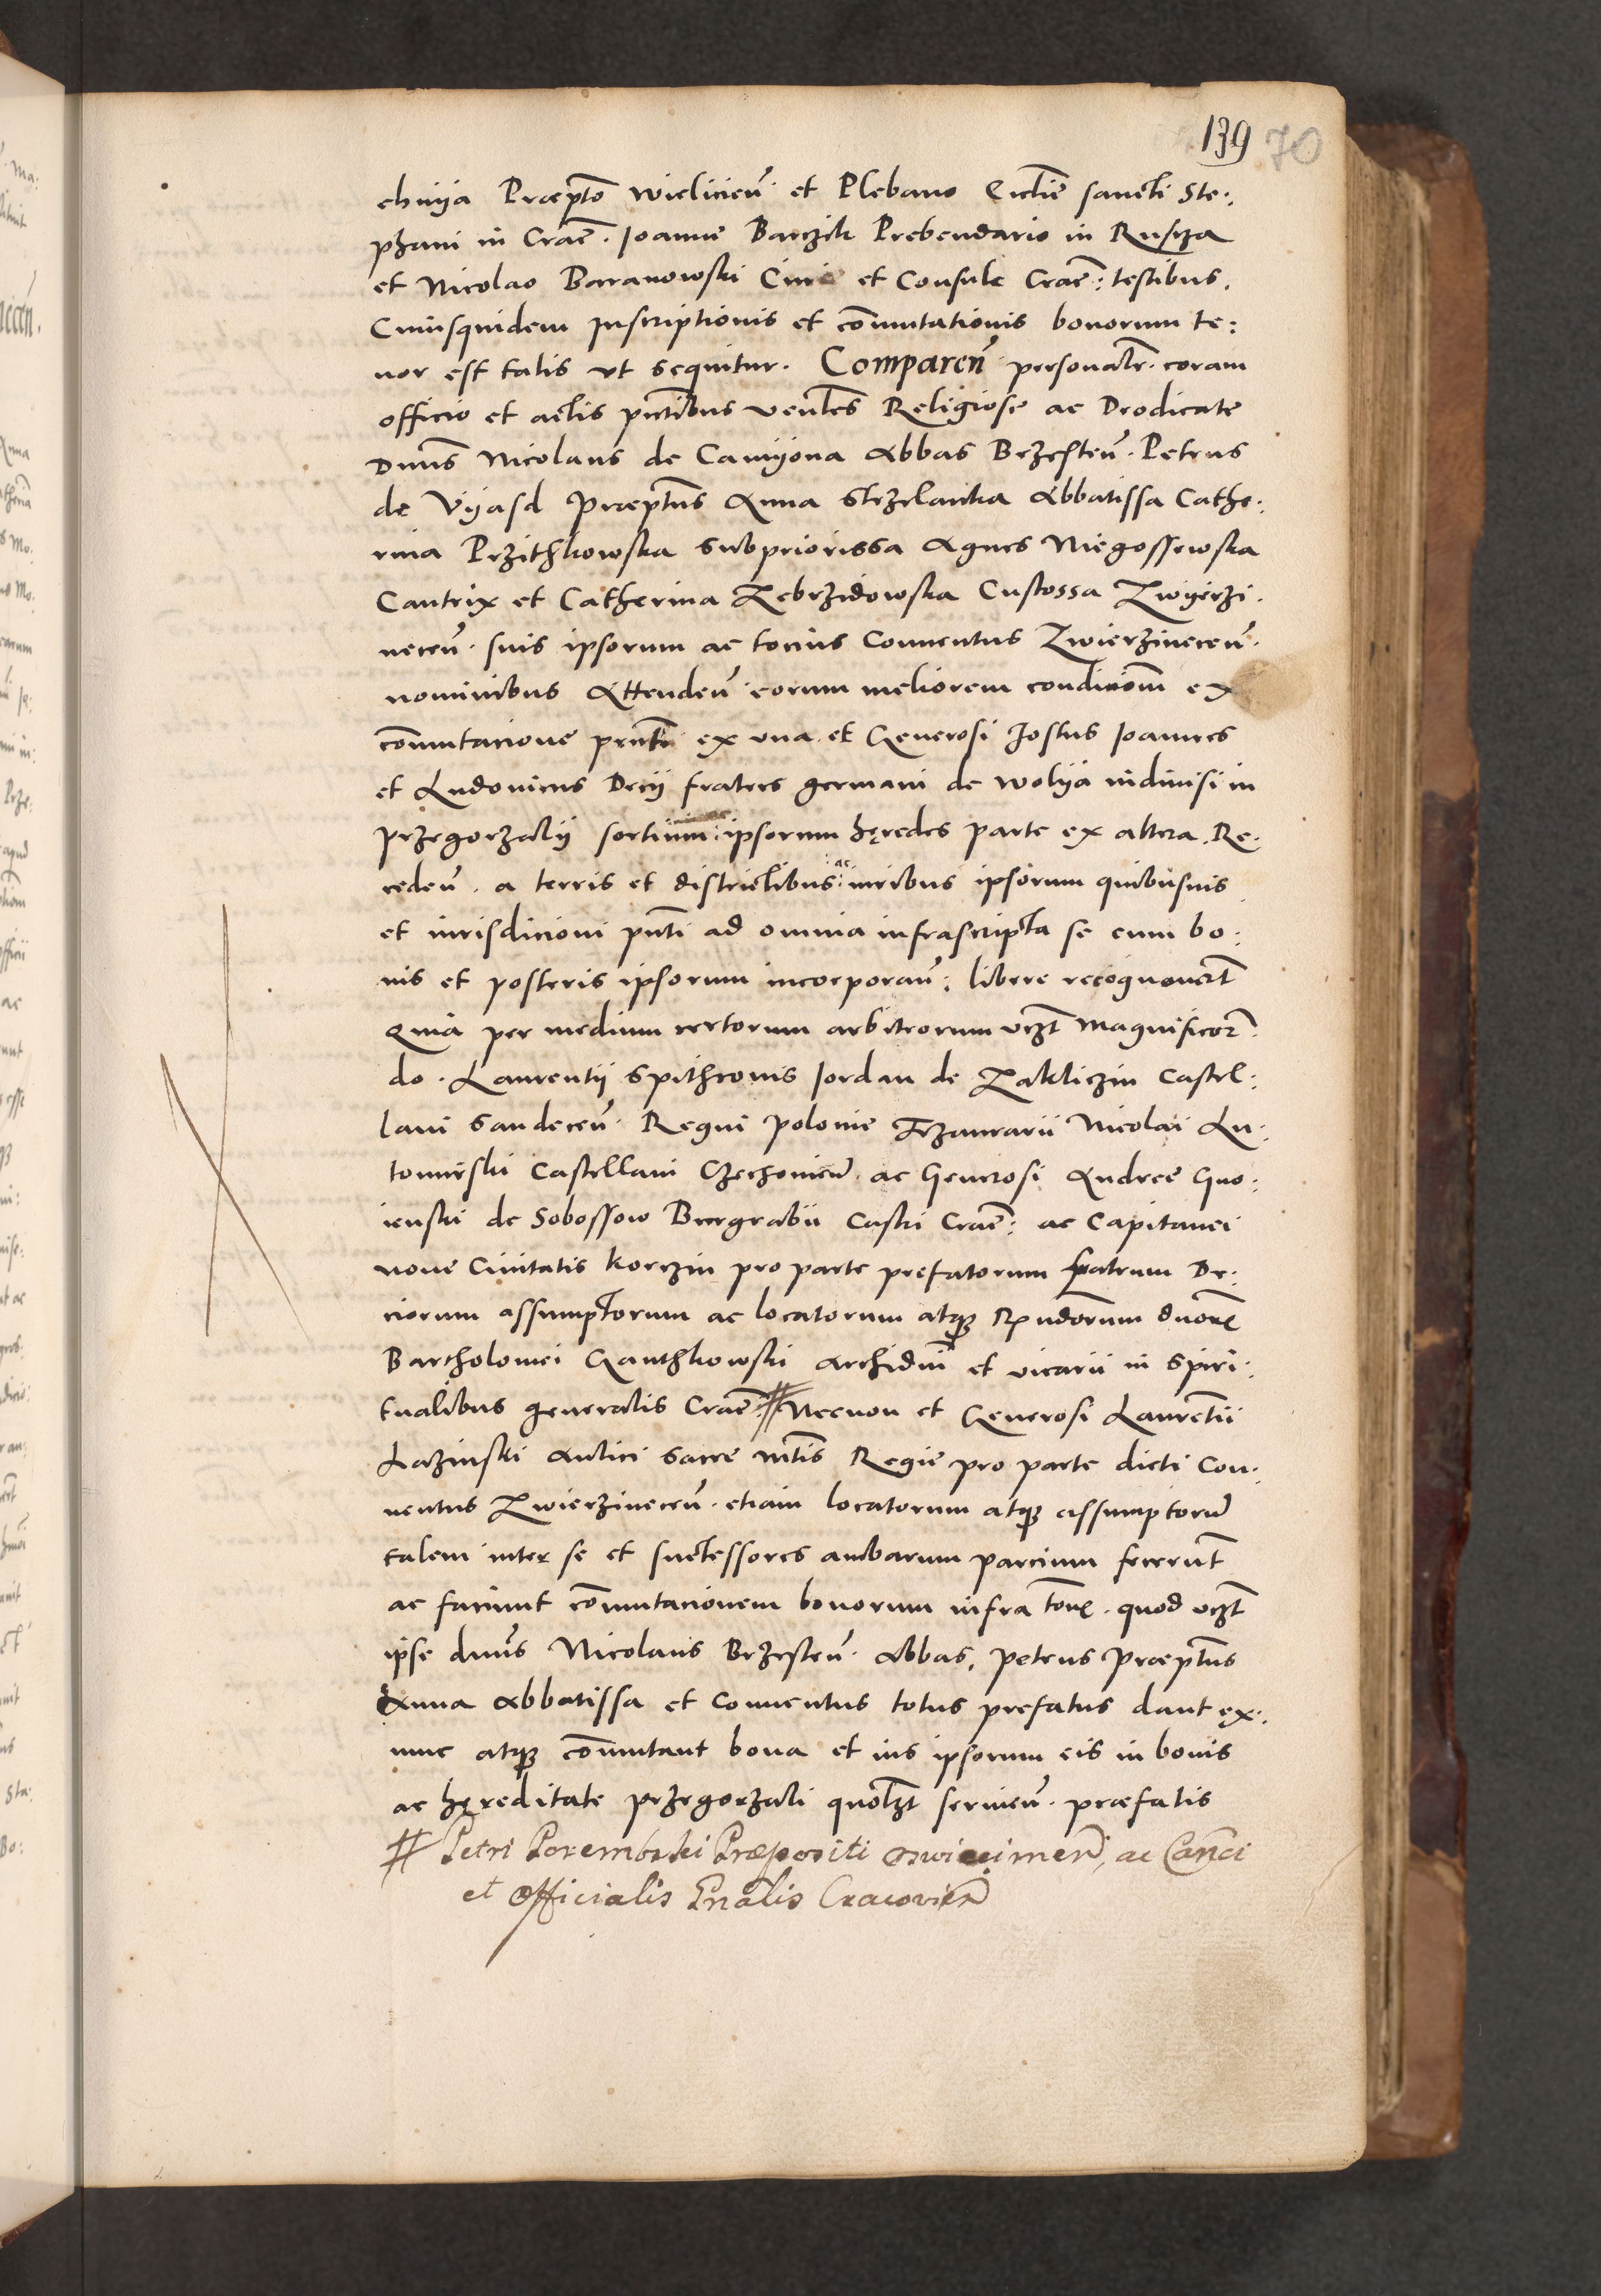 139 70
chnija Præpto Wieliciēn et Plebano Ecclie sancti Ste:
phani in Crac̄. Joanne Barczik Prebendario in Rusiza
et Nicolao Baranowski Civie et Consule Crac̄: testibus.
Cuiusquidem inscriptionis et cōmutationis bonorum te:
nor est talis vt sequitur. Comparen̄ personalr̄. coram
officio et actis pn̄tibus ven̄les Religiose ac Deodicate
Dnūs Nicolaus de Camijona Abbas Brzesten̄. Petrus
de Vijasd Præptus Anna Strzelanka Abbatissa Cathe:
rina Przithkowska Subpriorissa Agnes Niegossewska
Cantrix et Catherina Zebrzidowska Custossa Zwijerzi.
neceñ. suis ipsorum ac tocius Conuentus Zwierzineceñ.
nominibus Attendeñ eorum meliorem condicionem ex
cōmutacione pn̄ti ex vna et Generosi Jostus Joannes
et Ludouicus Decij fratres germani de Wolija indiuisi in
Przegorzalij sortium ipsorum hęredes parte ex altera. Re.
cedeñ. a terris et districtibus ac iuribus ipsorum quibusuis
et iurisdicioni pn̄ti ad omnia infrascripta se cum bo:
nis et posteris ipsorum incorporañ: libere recognouert̄
Quia per medium certorum arbitrorum vczt̄ Magnificor̄
do. Laurentij Spithconis Jordan de Zakliczin Castel:
lani Sandeceñ. Regni Polonie Thzaurarii Nicolai Lu:
tomirski Castellani Czechouien̄. ac Generosi Andree Gno:
ienski de Sobossow Burgrabii Castri Crac̄: ac Capitanei
noue Ciuitatis Korczin pro parte prefatorum fratrum De:
ciorum assumptorum ac locatorum atq3 Rn̄dorum dnor̄
Bartholomei Ganthkowski Archidni et vicarii in Spiri:
tualibus generalis Crac̄: # Necnon et Generosi Laurentii
Lazinski Aulici Sacre mt̄is Regie pro parte dicti Con.
uentus Zwierzineceñ. etiam locatorum atq3 assumptorū
talem inter se et successores ambarum parcium fecerunt
ac faciunt cōmutacionem bonorum infra tor̄. quod vczt̄
ipse dnūs Nicolaus Brzesteñ. Abbas. Petrus Præptus
Anna Abbatissa et Conuentus totus prefatus dant ex.
nunc atq3 cōmutant bona et ius ipsorum eis in bonis
ac hęreditate Przegorzali quolz̄t serruień. præfatis
# Petri Porembski Præpositi oswiecimen̄, ac Canci
et Officialis Gn̄alis Cracovien̄